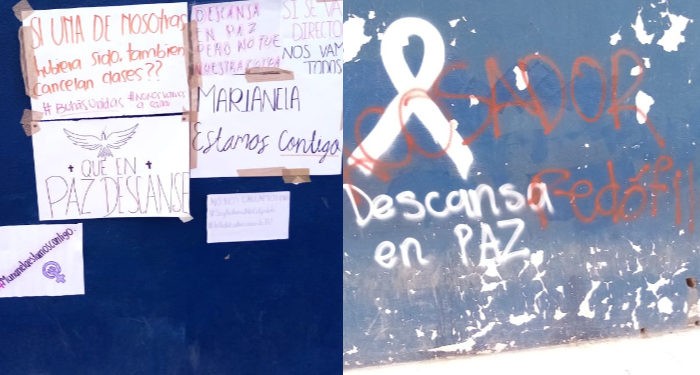 SI UNA DE NOSOTRAS
hubiera sido, también
cancelan clases??
#BUHAS UNIDAS #NONOSVAMOS
a callar
DESCANSA
EN PAZ
PERO NO FUE
NUESTRA CULPA
SI SE VA
DIRECTO
NOS VAM
TODOS
MARIANELA
Estamos Contigo
QUE EN
PAZ DESCANSE
#Marianelaestamoscontigo.
ACOSADOR
Pedófil!!
Descansa
en PAZ